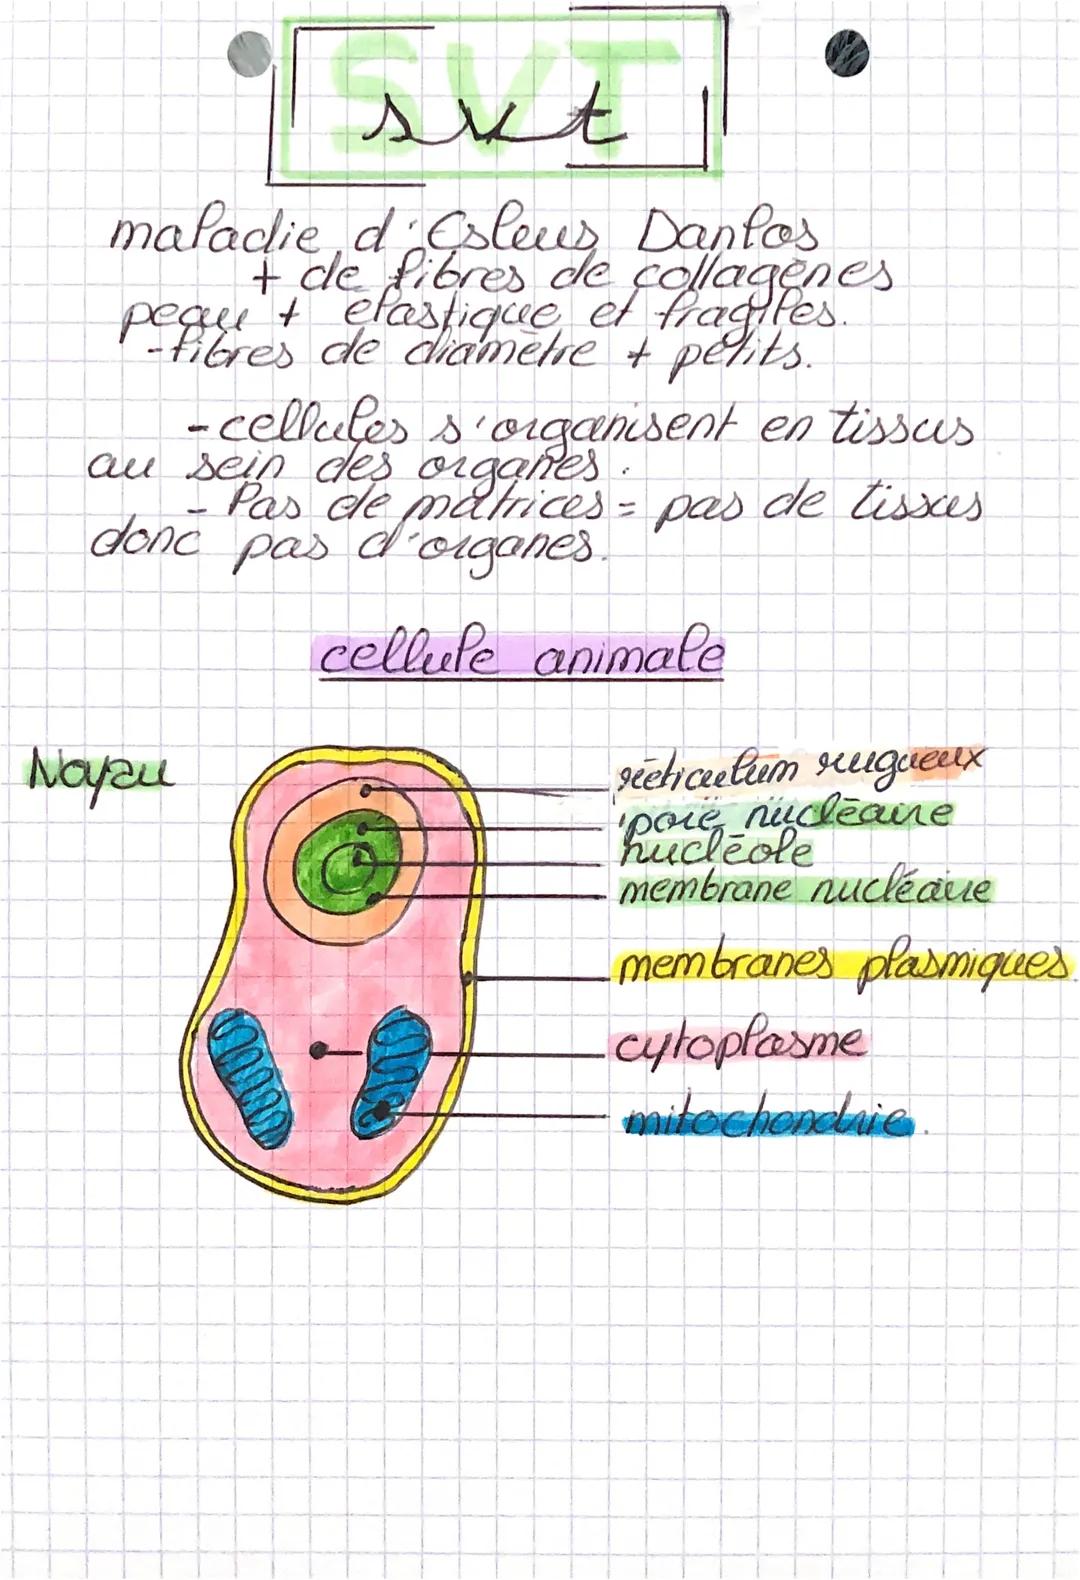 SVT
svt
maladie d'Esleus Danlos
+ de fibres de collagènes
peau + elastique et fragiles.
-fibres de diamètre + petits.
- cellules s'organisent en tissus
au sein des organes.
- Pas de matrices = pas de tissus
donc pas d'organes.
cellule animale
Noyau
réticulum rugueux
pore nucléaire
nucléole
membrane nucléaire
membranes plasmiques
cytoplasme
mitochondrie.